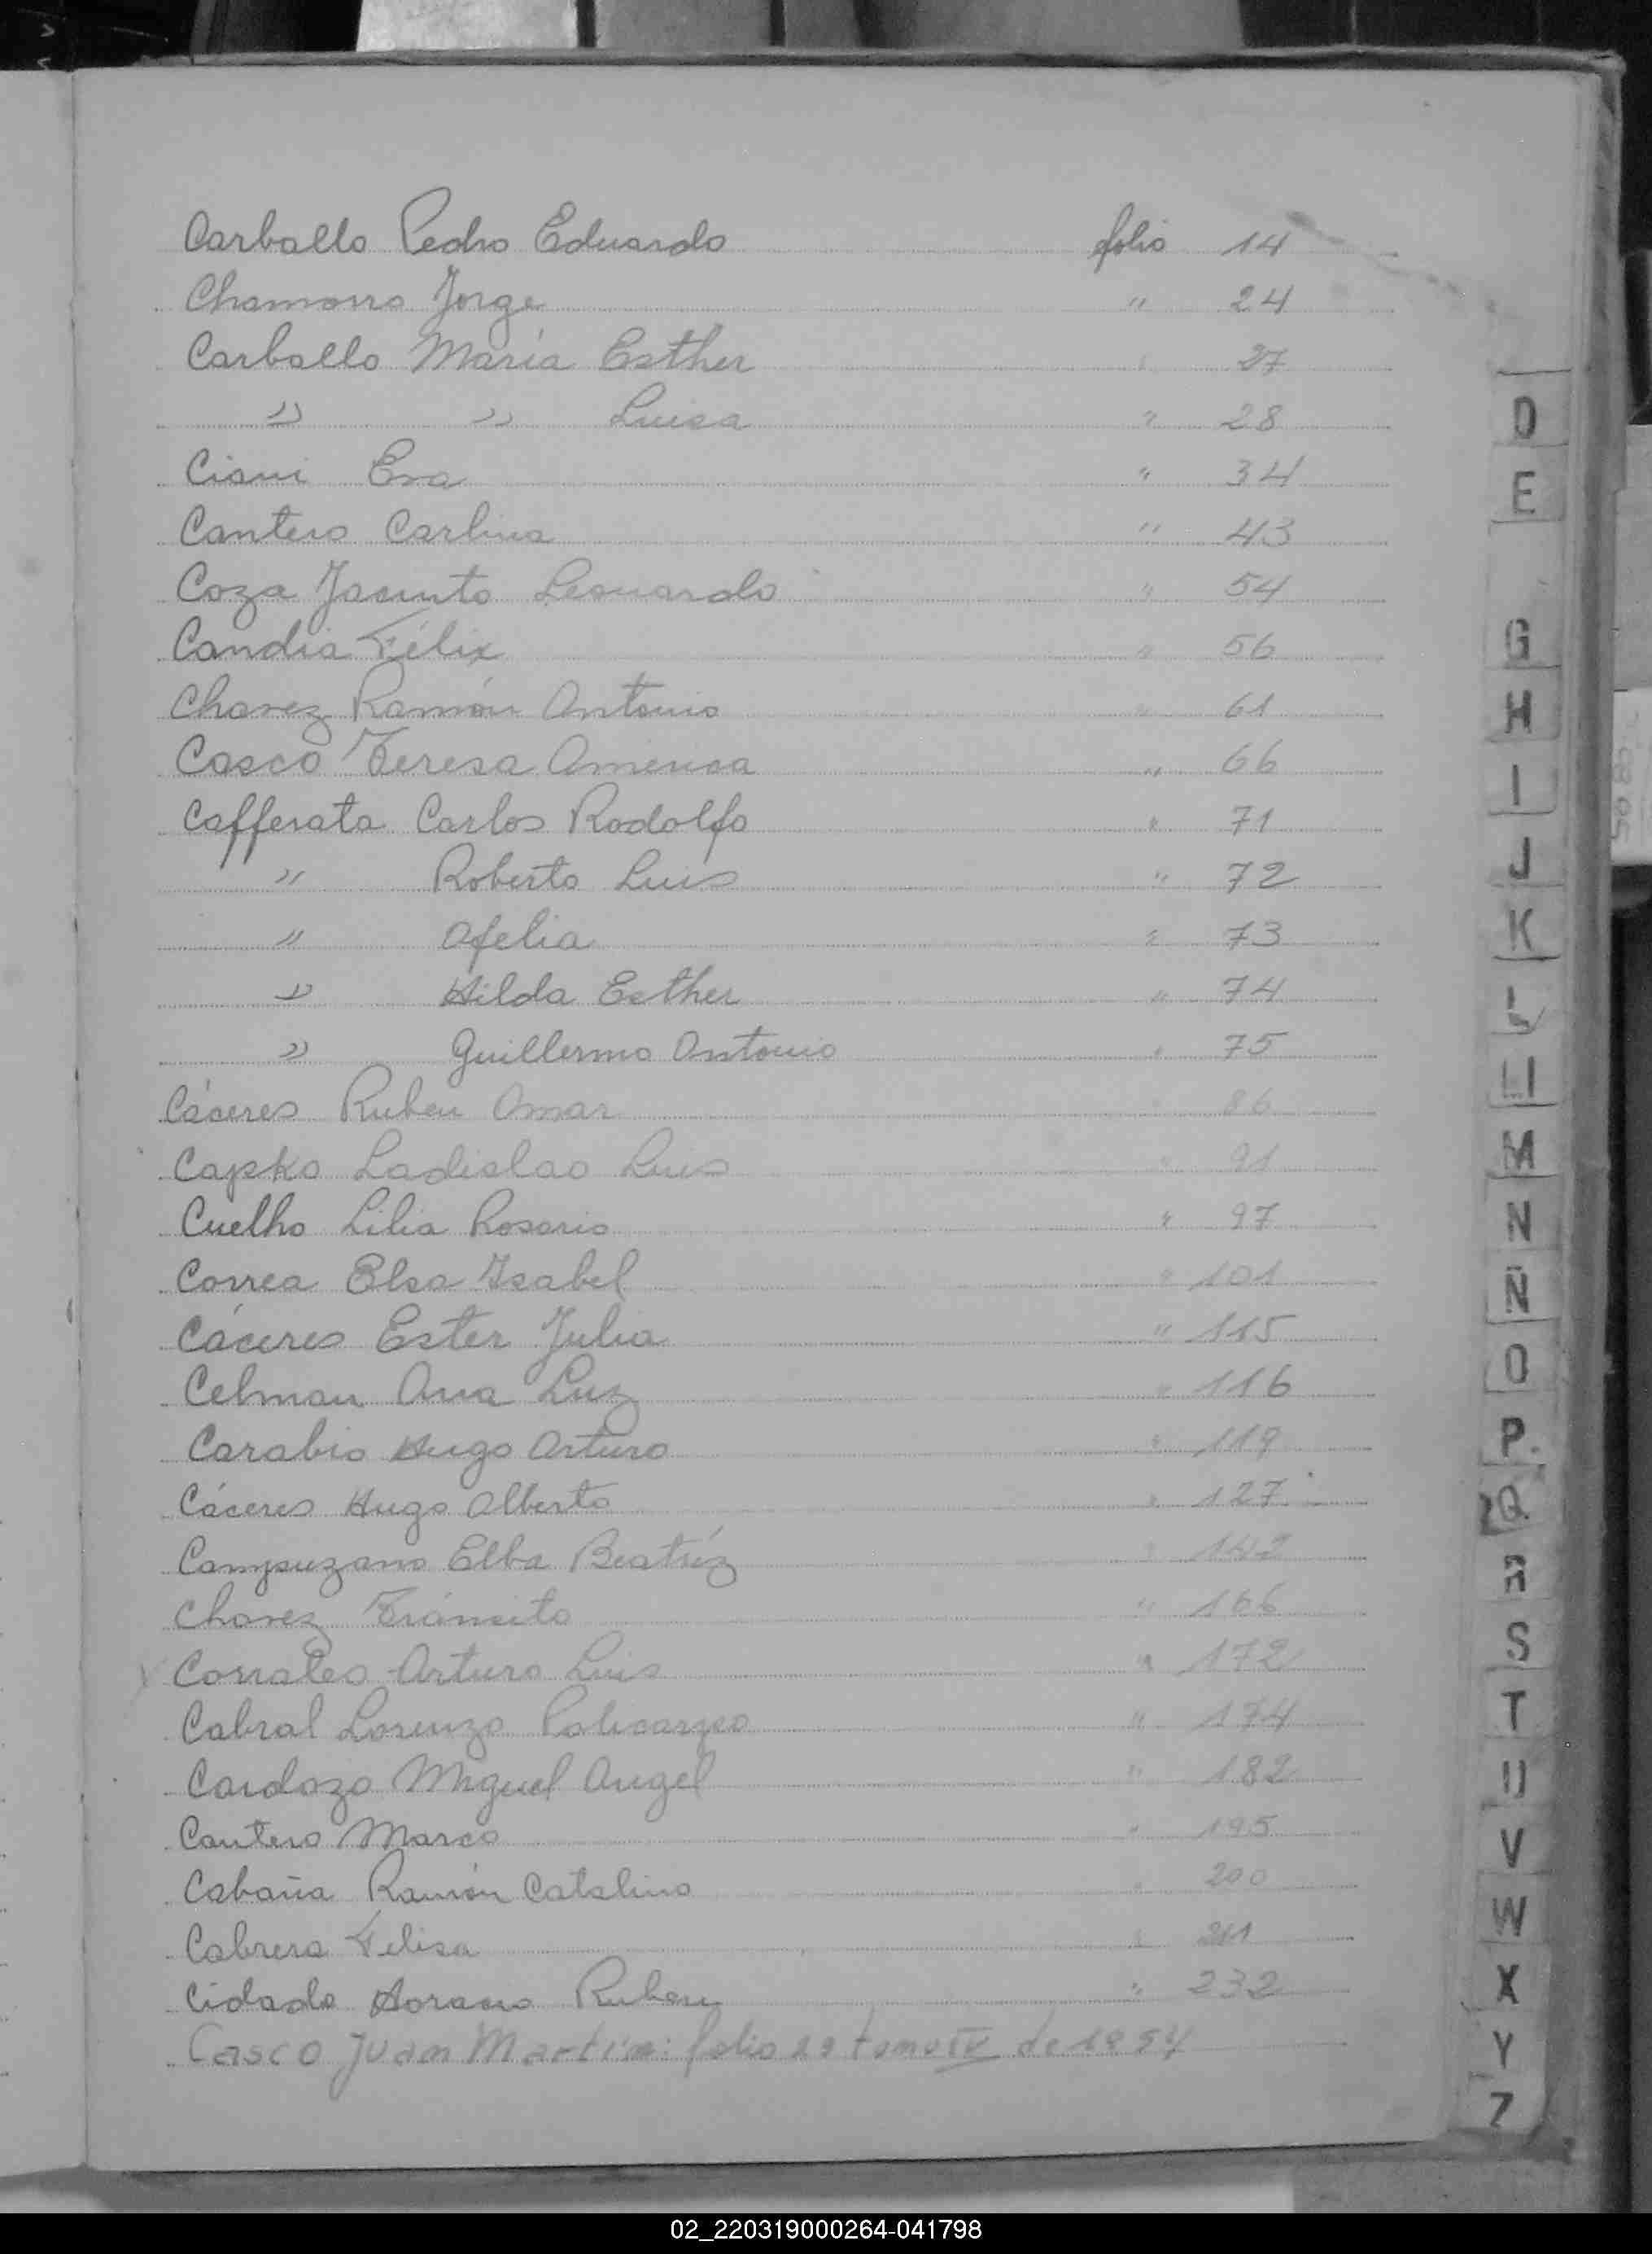 Carballo Pedro Eduardo folio 14
Chamorro Jorge " 24
Carballo María Esther " 27
" " Luisa " 28
Ciani Eva " 34
Cantero Carlina " 43
Coza Jacinto Leonardo " 54
Candia Félix " 56
Chavez Ramón Antonio " 61
Casco Teresa America " 66
Cafferata Carlos Rodolfo " 71
" Roberto Luis " 72
" Ofelia " 73
" Hilda Esther " 74
" Guillermo Antonio " 75
Cáceres Ruben Omar " 86
Capko Ladislao Luis " 91
Cuelho Lilia Rosario " 97
Correa Elsa Isabel " 101
Cáceres Ester Julia " 115
Celman Ana Luz " 116
Carabio Hugo Arturo " 119
Cáceres Hugo Alberto " 127
Campuzano Elba Beatríz " 142
Chavez Tránsito " 166
Corrales Arturo Luis " 172
Cabral Lorenzo Policarpo " 174
Cardozo Miguel Angel " 182
Cantero Marco " 195
Cabaña Ramón Catalino " 200
Cabrera Felisa " 211
Cidade Horacio Ruben " 232
Casco Juan Martín: folio 29 tomo IV de 1954
D
E
G
H
I
J
K
L
Ll
M
N
Ñ
O
P.
Q
R
S
T
U
V
W
X
Y
Z
02_220319000264-041798